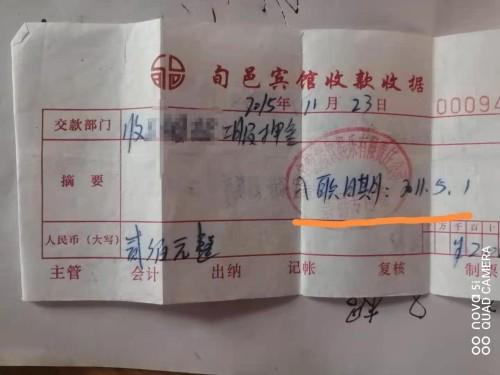 旬邑宾馆收款收据
2015年11月23日
00094
交款部门 收 服押金
摘要 联日期：2011.5.1
人民币（大写） 贰佰元整
万千百十
¥20
主管 会计 出纳 记帐 复核 制票
nova 5i
QUAD CAMERA